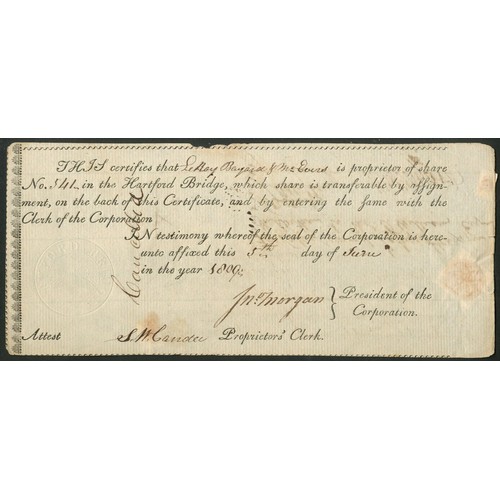 THIS certifies that LeRoy Bayard & McEvers is proprietor of share
No. 341 in the Hartford Bridge, which share is transferable by aſſign-
ment, on the back of this Certificate, and by entering the ſame with the
Clerk of the Corporation
IN testimony whereof the seal of the Corporation is here-
unto affixed this 5th day of June
in the year 1809.
Cancelled
Jno. Morgan } President of the
Corporation.
Attest S W Candee Proprietors' Clerk.